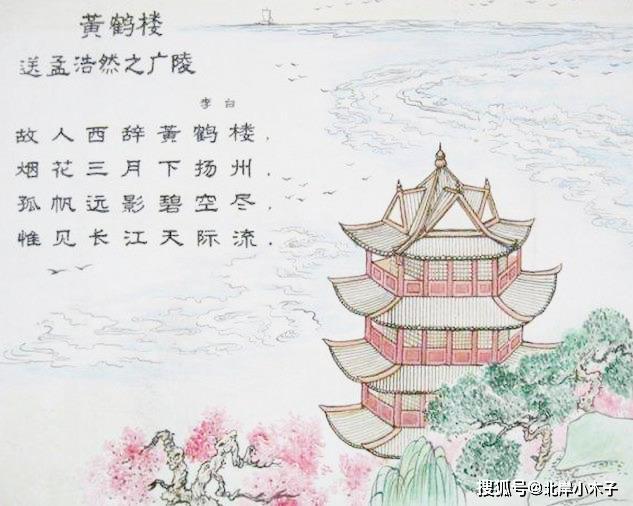 黄鹤楼
送孟浩然之广陵
李白
故人西辞黄鹤楼，
烟花三月下扬州，
孤帆远影碧空尽，
惟见长江天际流．
搜狐号@北岸小木子